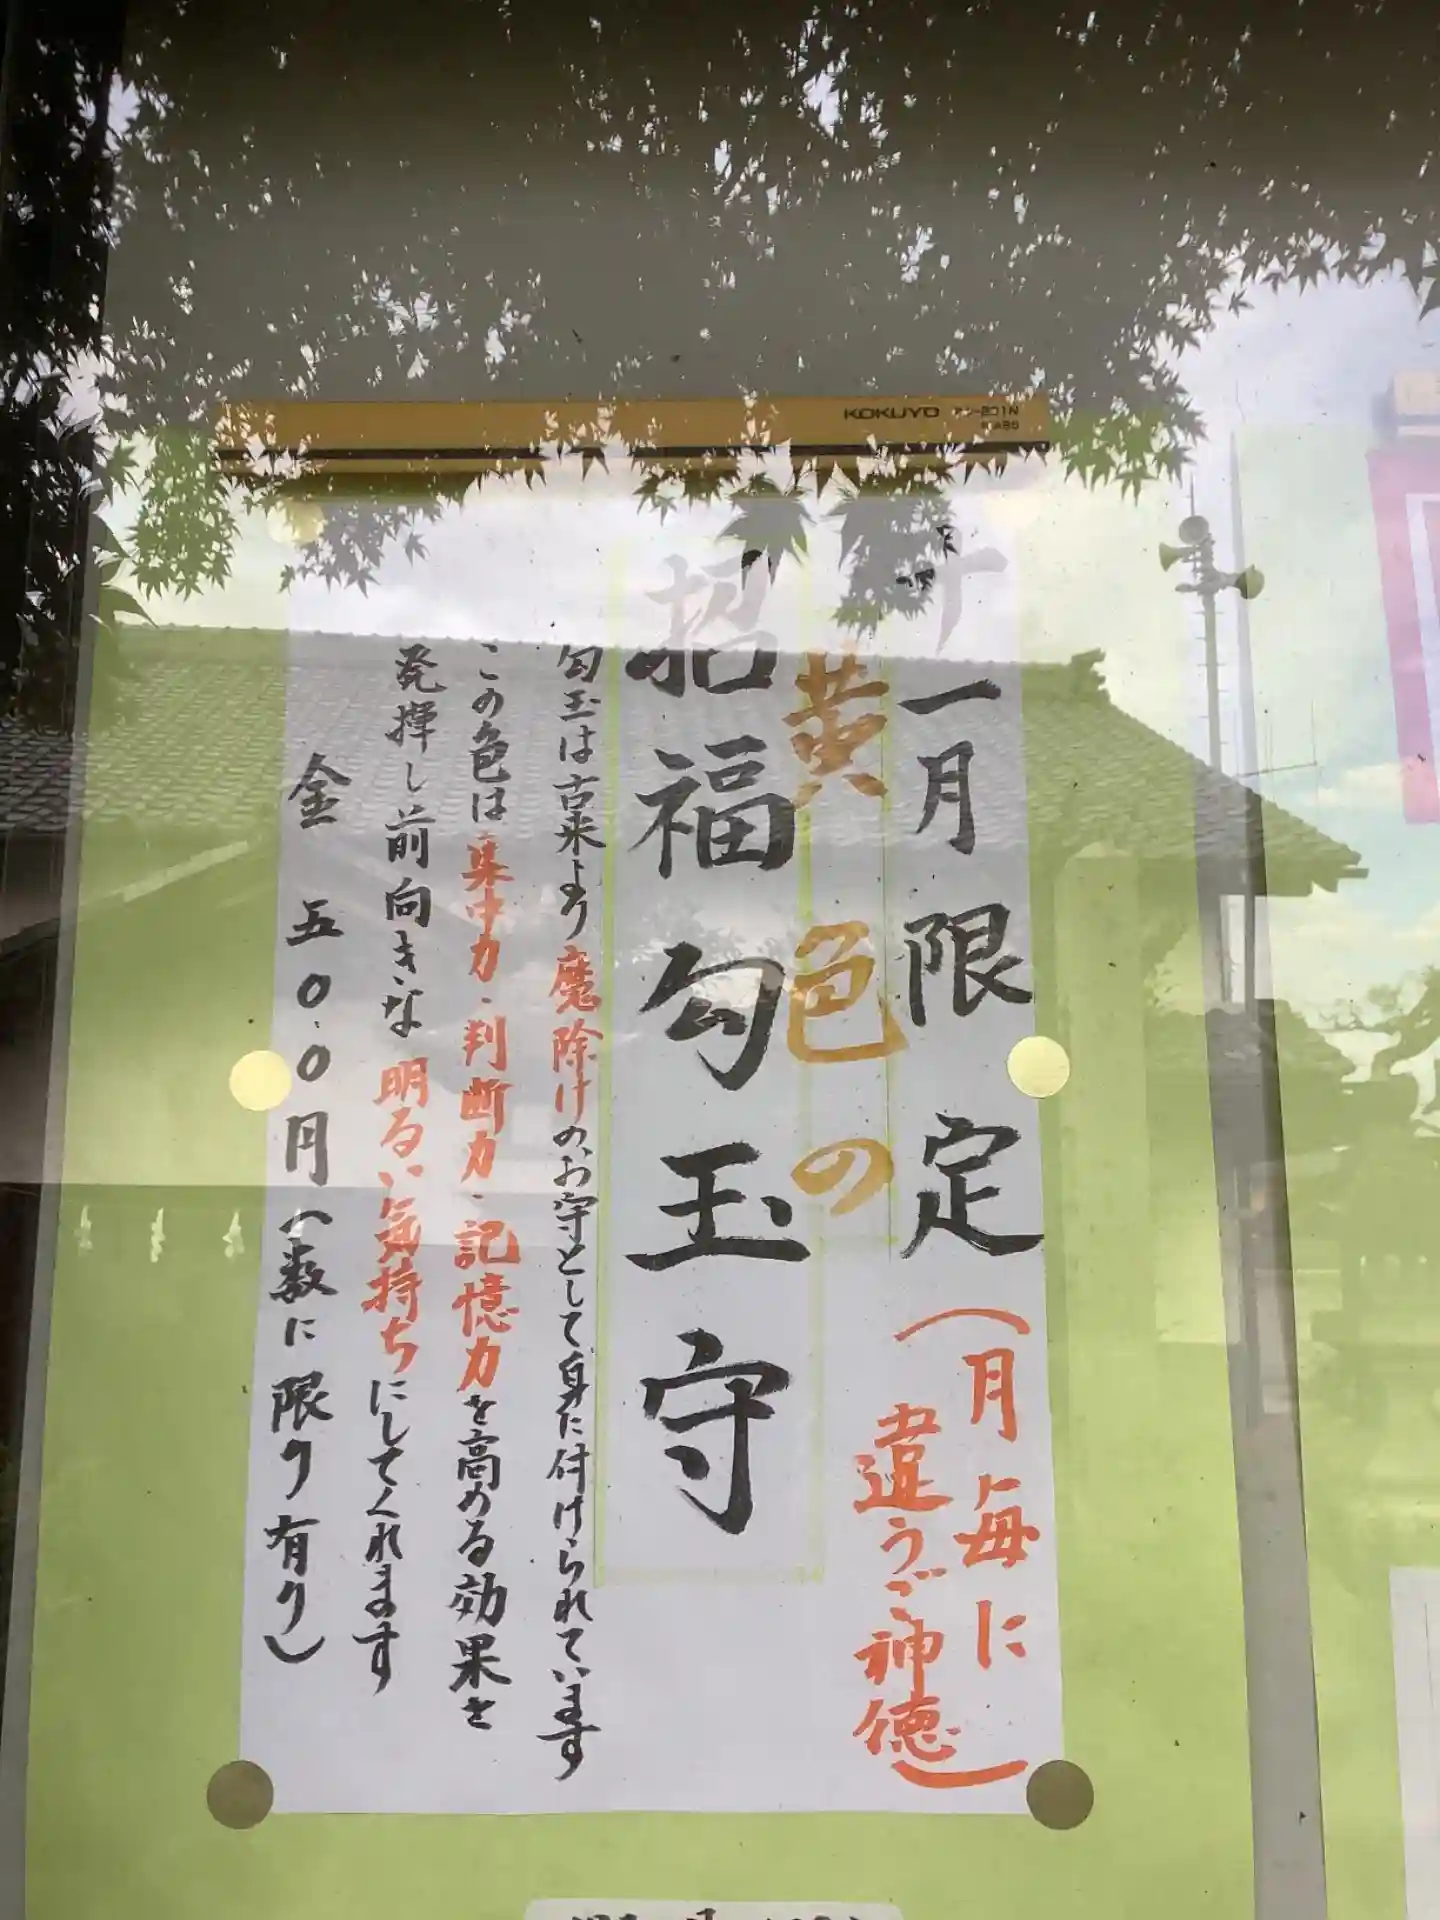 KOKUYO
十一月限定
(月毎に
違うご神徳)
黄色の
招福勾玉守
勾玉は古来より魔除けのお守として身に付けられています
この色は集中力・判断力・記憶力を高める効果を
発揮し前向きな明るい気持ちにしてくれます
金 五〇〇円(数に限り有り)